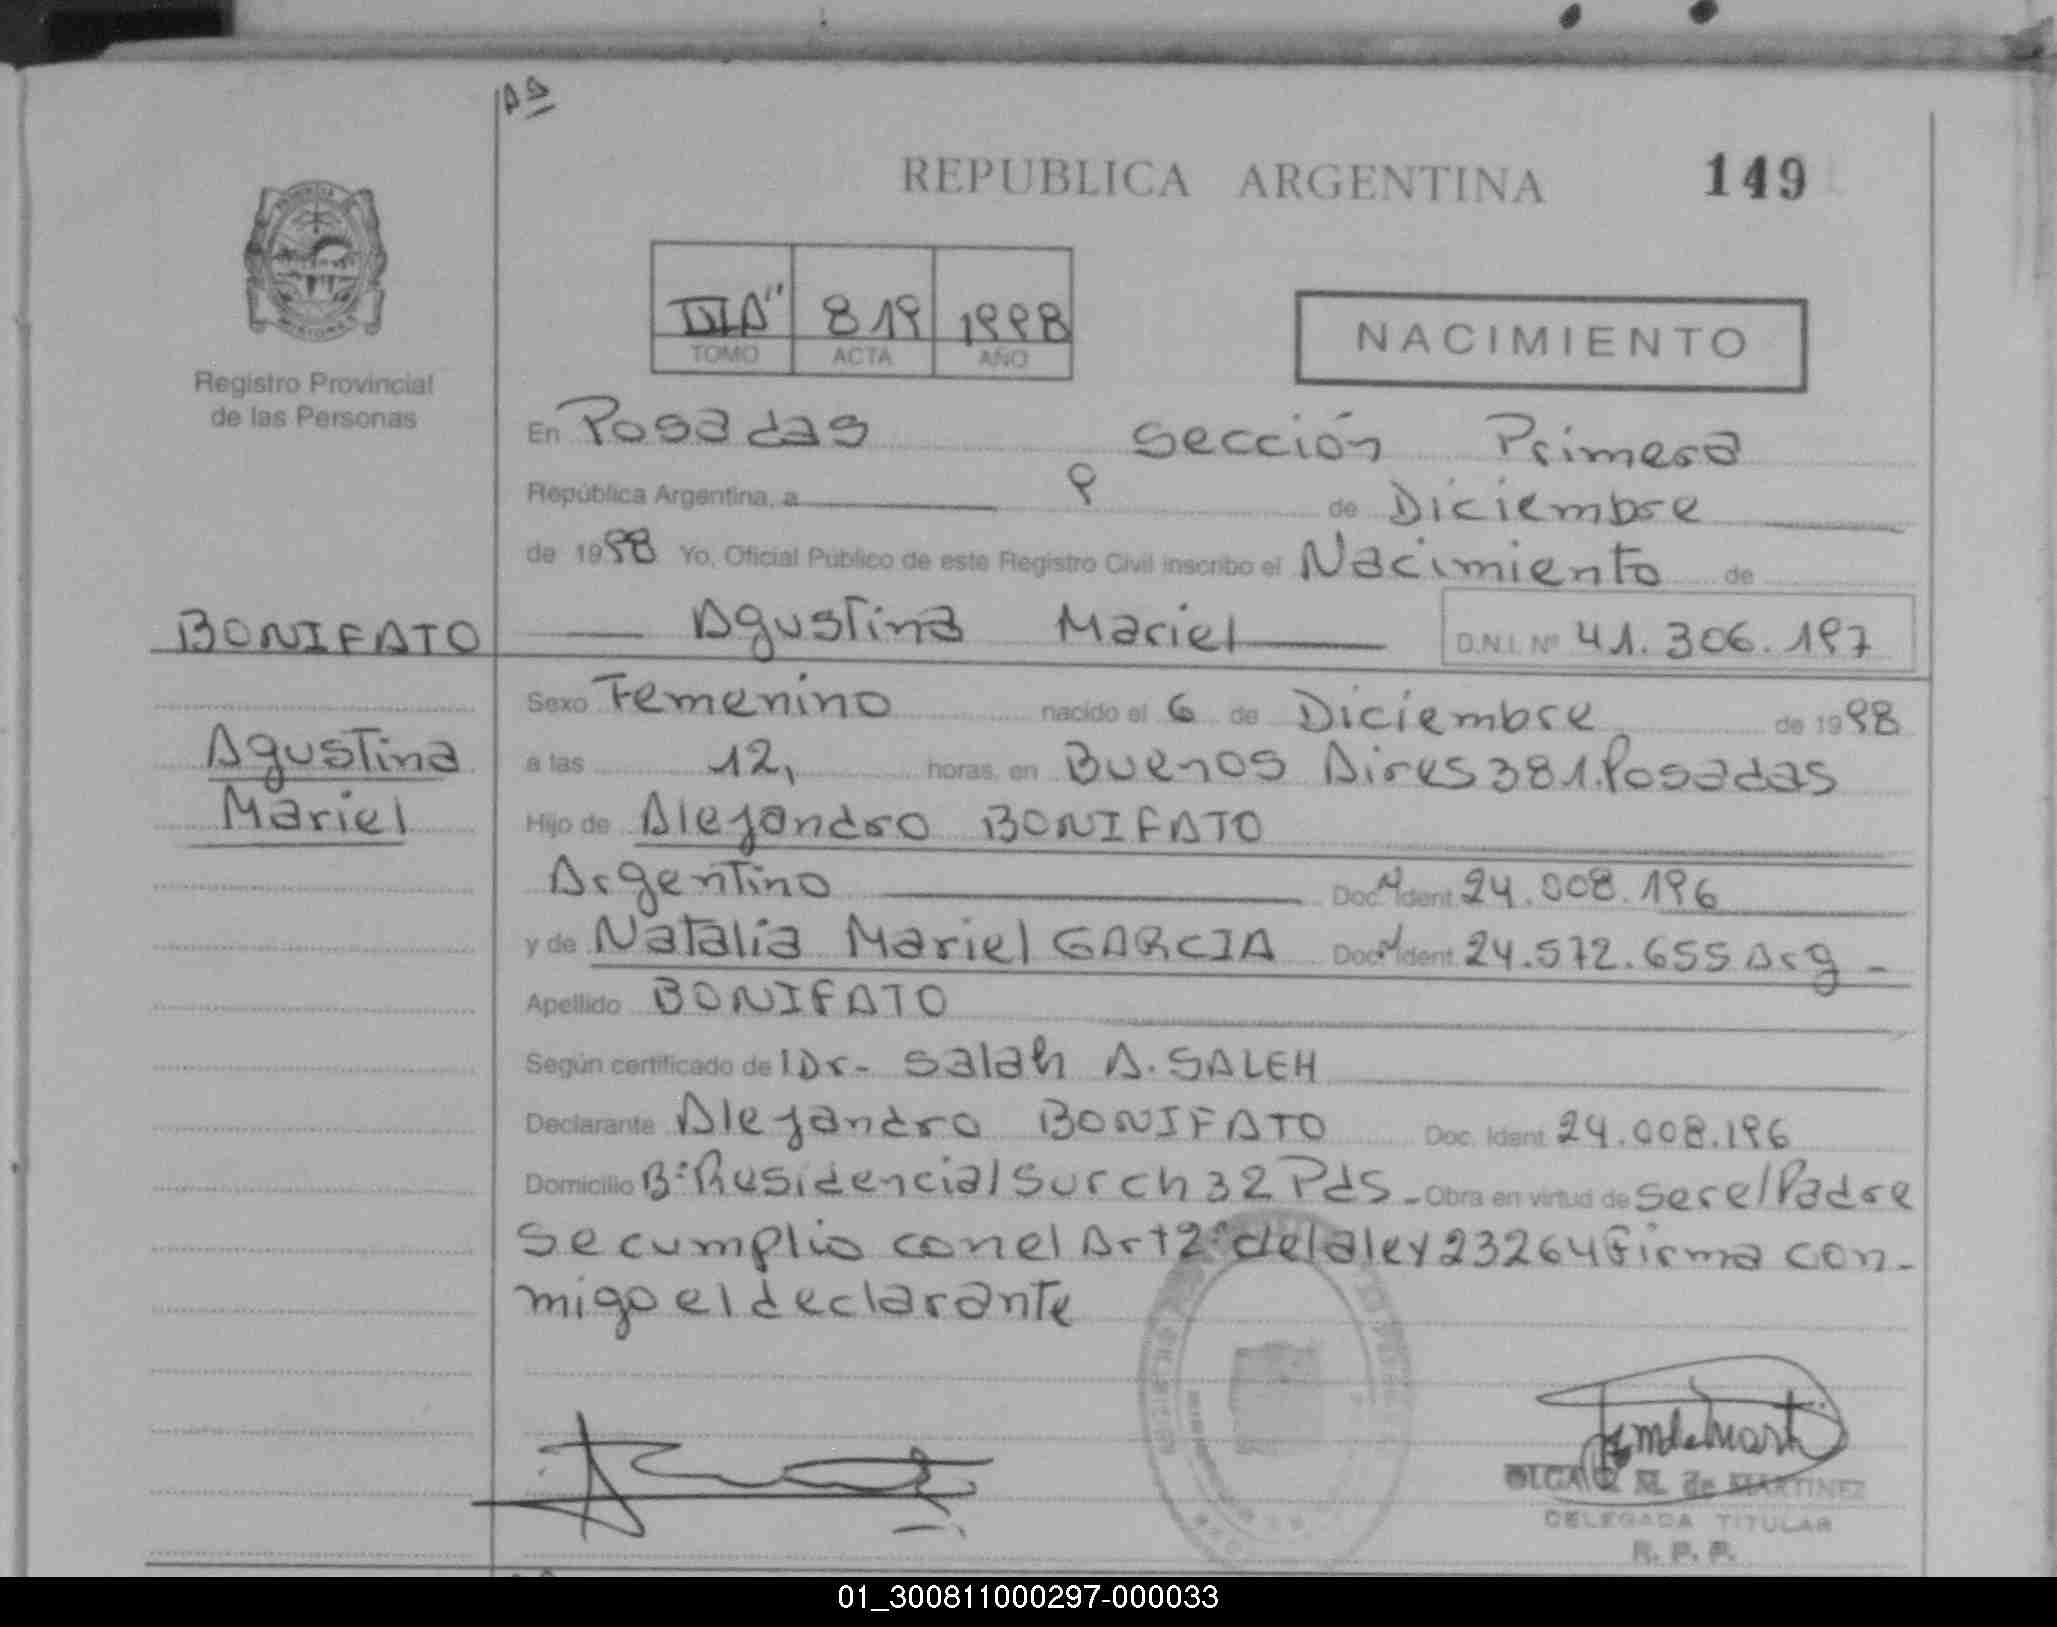 REPUBLICA ARGENTINA 149
819 1998
TOMO ACTA AÑO
NACIMIENTO
MISIONES
Registro Provincial
de las Personas
En Posadas sección Primera
República Argentina, a 9 de Diciembre
de 1998 Yo, Oficial Público de este Registro Civil inscribo el Nacimiento de
BONIFATO Agustina Mariel D.N.I. Nº 41.306.197
Sexo Femenino nacido el 6 de Diciembre de 1998
Agustina
a las 12, horas, en Buenos Aires 381. Posadas
Mariel
Hijo de Alejandro BONIFATO
Argentino Doc. Ident. 24.008.196
y de Natalia Mariel GARCIA Doc. Ident. 24.572.655 Arg -
Apellido BONIFATO
Según certificado de Dr- Salah A. SALEH
Declarante Alejandro BONIFATO Doc. Ident. 24.008.196
Domicilio Bº Residencial Sur ch 32 Pds. Obra en virtud de ser el Padre
se cumplio con el Art 2º de la ley 23264 Firma con-
migo el declarante
OLGA M. de MARTINEZ
DELEGADA TITULAR
R. P. P.
01_300811000297-000033